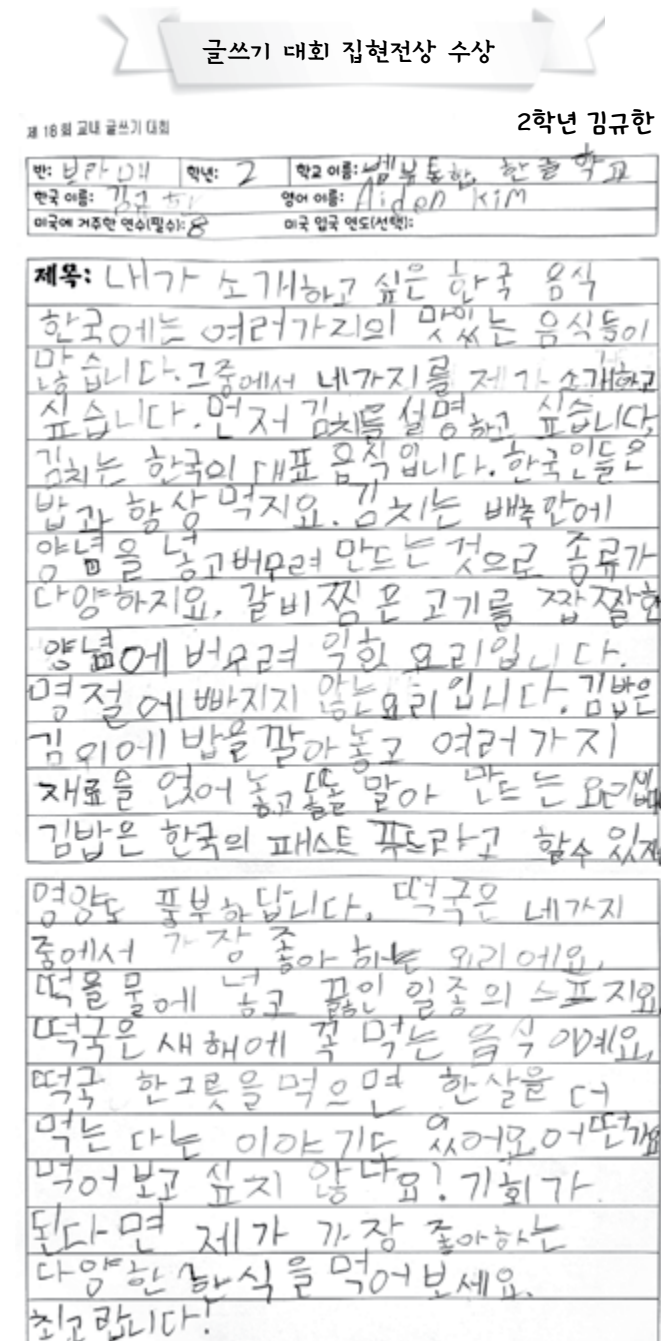 글쓰기 대회 집현전상 수상
제 18회 교내 글쓰기 대회
2학년 김규한
반: 보라매 학년: 2 학교 이름: 벧부통합 한글 학교
한국 이름: 김규한 영어 이름: Aiden Kim
미국에 거주한 연수(필수): 8 미국 입국 연도(선택):
제목: 내가 소개하고 싶은 한국 음식
한국에는 여러가지의 맛있는 음식들이
많습니다. 그중에서 네가지를 제가 소개하고
싶습니다. 먼저 김치를 설명하고 싶습니다,
김치는 한국의 대표 음식입니다. 한국인들은
밥과 항상 먹지요. 김치는 배추안에
양념을 넣고 버무려 만드는 것으로 종류가
다양하지요. 갈비찜은 고기를 짭짤한
양념에 버무려 익힌 요리입니다.
명절에 빠지지 않는 요리입니다. 김밥은
김 위에 밥을 깔아 놓고 여러 가지
재료을 얹어 놓고 돌돌 말아 만드는 요리입니다
김밥은 한국의 패스트 푸드라고 할수 있지
영양도 풍부하답니다. 떡국은 네가지
중에서 가장 좋아 하는 요리에요.
떡을 물에 넣고 끓인 일종의 스프지요
떡국은 새해에 꼭 먹는 음식이예요.
떡국 한그릇을 먹으면 한살을 더
먹는 다는 이야기도 있어요. 어떤가요
먹어 보고 싶지 않나요? 기회가
된다면 제가 가장 좋아하는
다양한 한식을 먹어보세요.
최고랍니다!